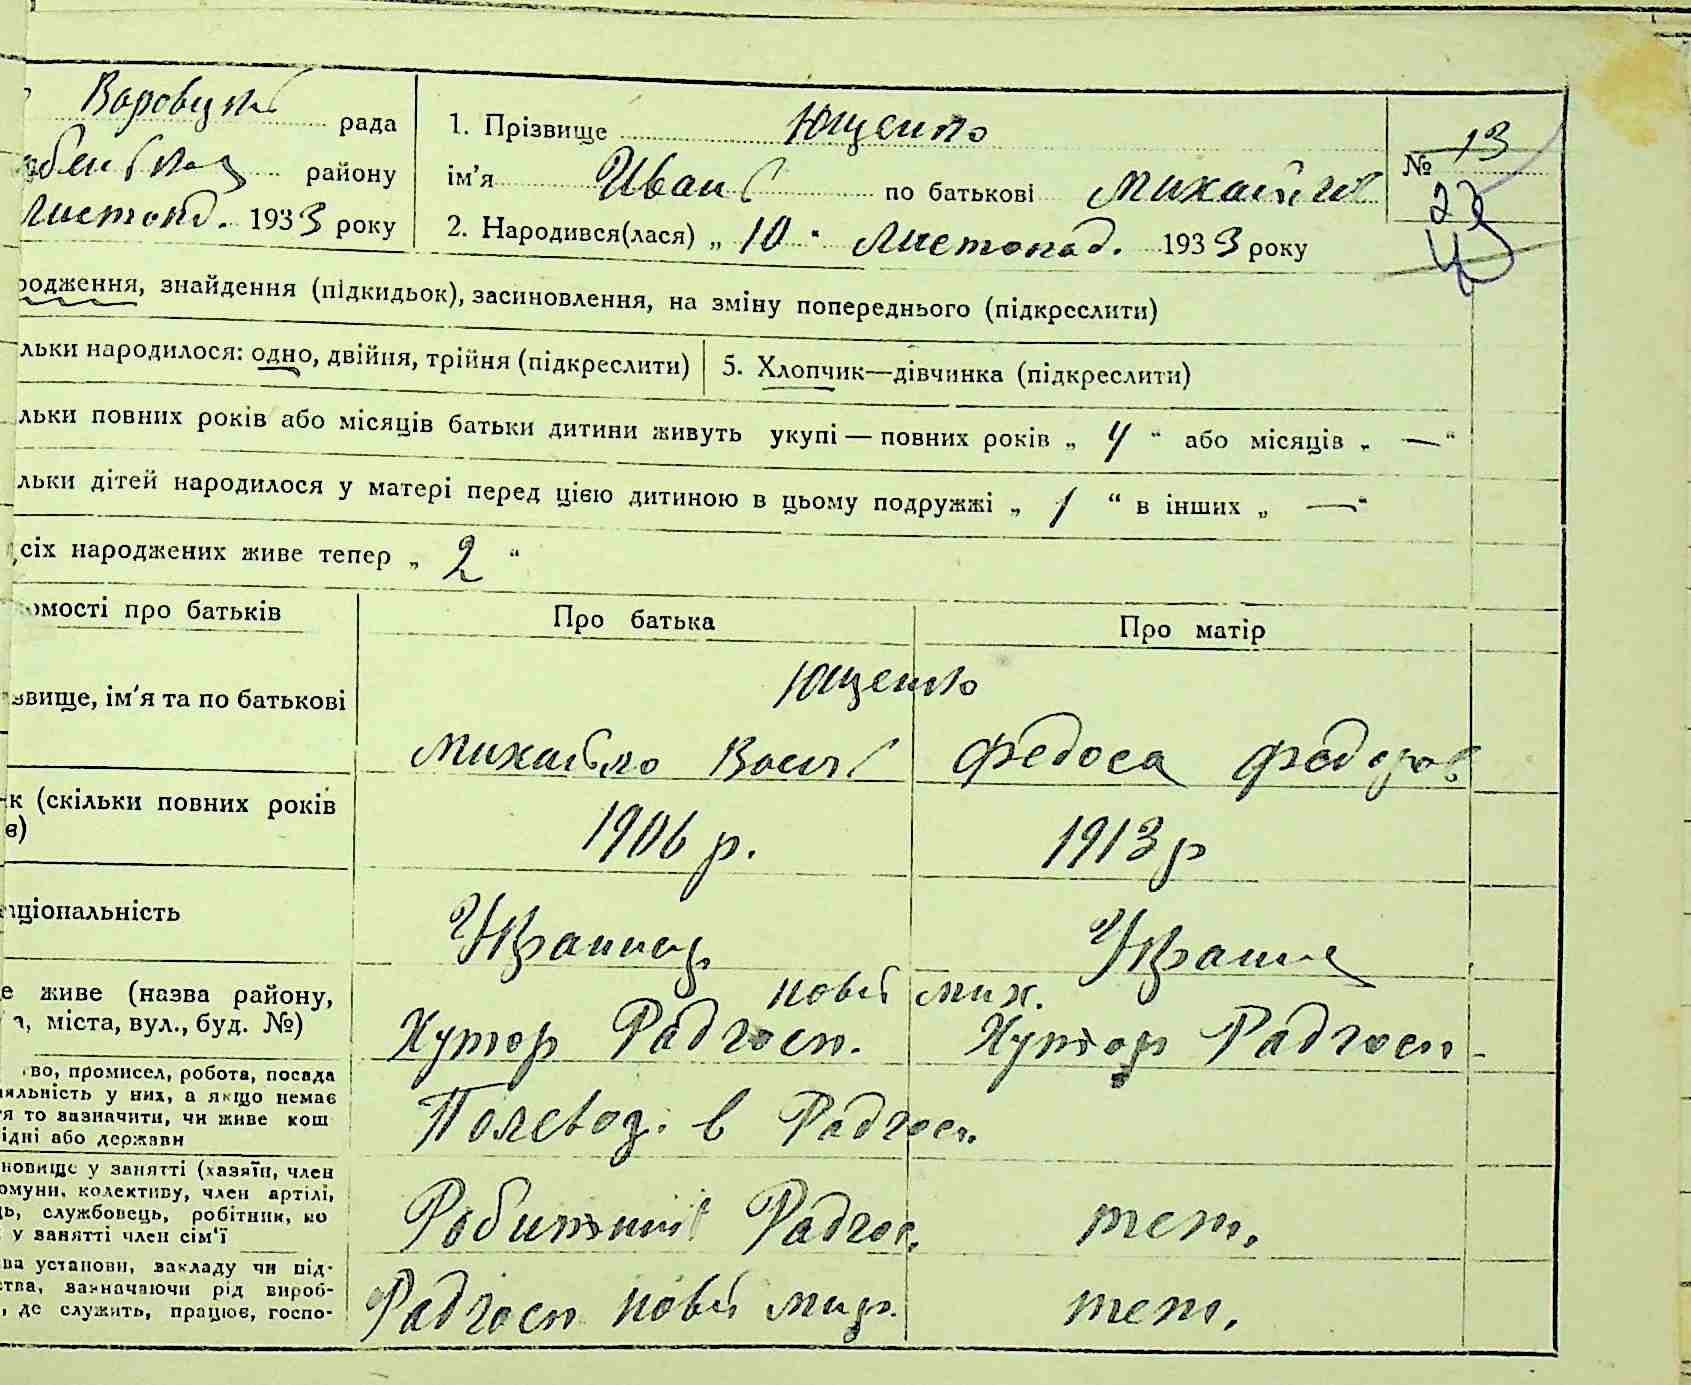 рада
районy
Листопд. 1933 року
1. Прізвище Ющенко
ім'я Иван по батькові
2. Народився(лася) „ 10 " Листопад. 1933 року
№ 13
23
одження, знайдення (підкидьок), засиновлення, на зміну попереднього (підкреслити)
льки народилося: одно, двійня, трійня (підкреслити)
5. Хлопчик—дівчинка (підкреслити)
льки повних років або місяців батьки дитини живуть укупі — повних років „ 4 “ або місяців „ — “
льки дітей народилося у матері перед цією дитиною в цьому подружжі „ 1 “ в інших „ — “
сіх народжених живе тепер „ 2 “
омості про батьків
Про батька
Про матір
звище, ім'я та по батькові
Ющенко
Михайло Васил
Федоса Федоров
к (скільки повних років
в)
1906 р.
1913 р
ціональність
Украинец
е живе (назва району,
, міста, вул., буд. №)
нов
Хутор Радгосп.
Хутор Радгосп.
во, промисел, робота, посада
яльність у них, а якщо немає
я то зазначити, чи живе кош
ідні або держави
Полевод. в Радгосп.
новище у занятті (хазяїн, член
омуни, колективу, член артілі,
ь, службовець, робітник, но
у занятті член сім'ї
Радгос.
теж.
ва установи, закладу чи під-
ства, зазначаючи рід вироб-
, де служить, працює, госпо-
Радгосп
теж.